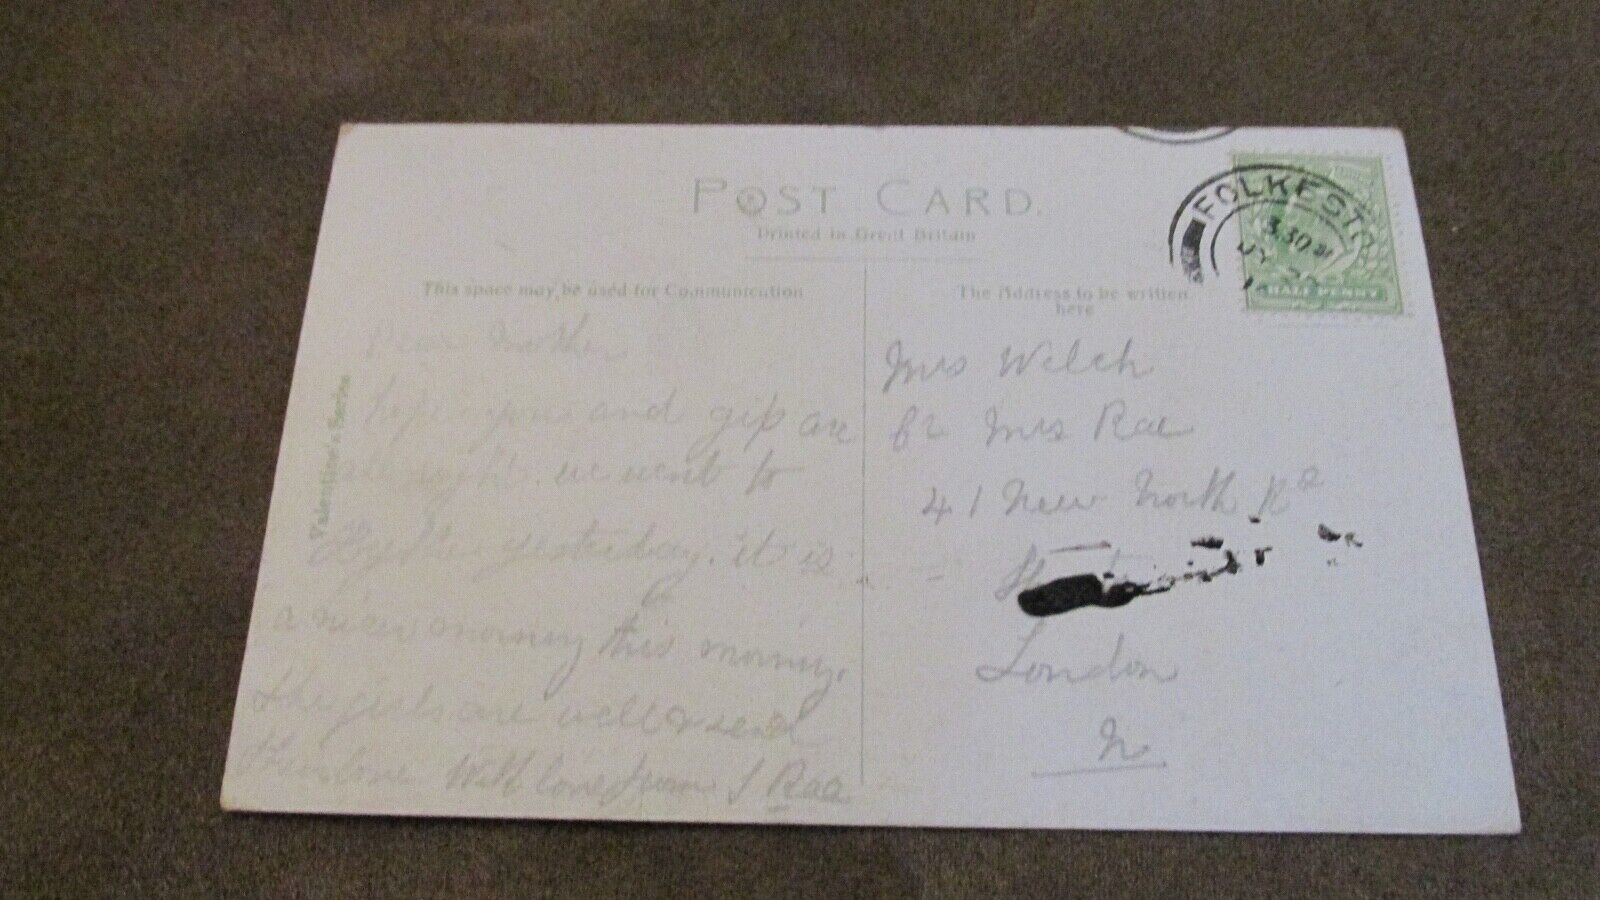 POST CARD.
Printed in Great Britain
This space may be used for Communication
The Address to be written
here
Valentine's Series
FOLKESTO
3.30 PM
HALF PENNY
Dear Mother
hope you and gip are
all right. we went to
Hythe yesterday. it is
a nice morning this morning.
the girls are well & send
their love With love from J Rae
Mrs Welch
Mrs Rae
41 New North Rd
London
N